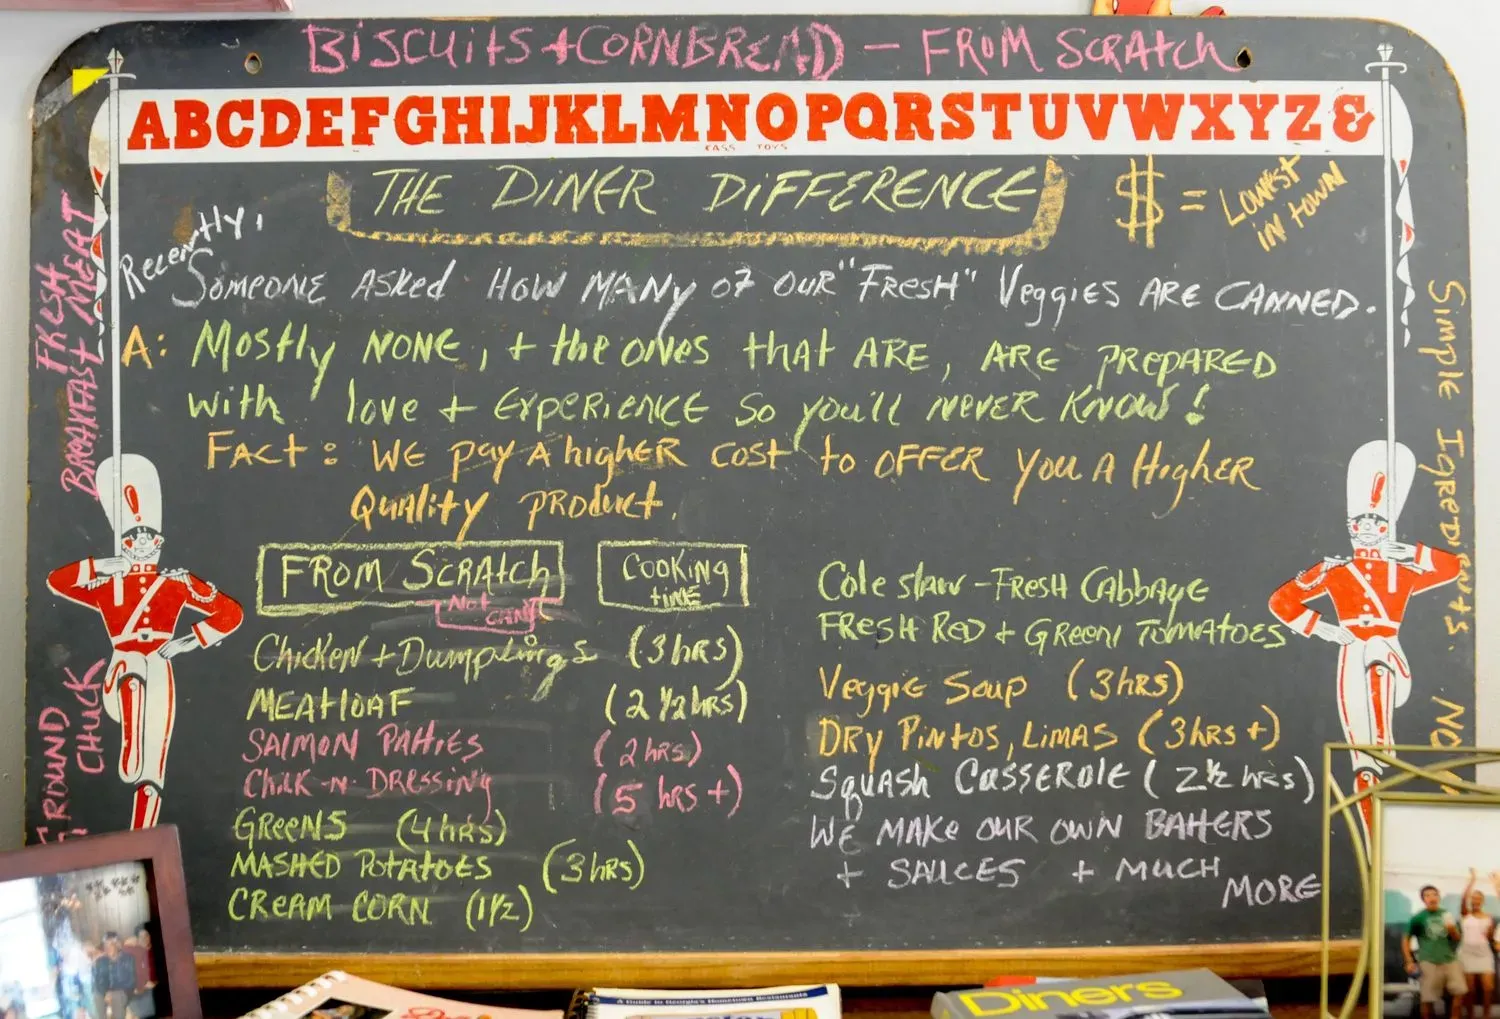 BISCUITS + CORNBREAD — FROM SCRATCH
ABCDEFGHIJKLMNOPQRSTUVWXYZ&
CASS TOYS
THE DINER DIFFERENCE
$ = LOWEST
IN TOWN
Recently,
SOMEONE ASKED HOW MANY OF OUR "FRESH" Veggies ARE CANNED.
A: Mostly NONE, + the ONES that ARE, ARE PREPARED
with love + EXPERIENCE So you'll NEVER KNOW!
FACT: WE pay A higher COST to OFFER YOU A Higher
Quality product.
FROM SCRATCH
COOKING
TIME
Not
CANT
Chicken + Dumplings (3 hrs)
MEATLOAF (2 1/2 hrs)
SALMON PATTIES (2 hrs)
Chik-N-DRESSING (5 hrs +)
GREENS (4 hrs)
MASHED POTATOES (3 hrs)
CREAM CORN (1 1/2)
Cole slaw - FRESH CABBAGE
FRESH RED + GREEN TOMATOES
VEGGIE SOUP (3 hrs)
DRY PINTOS, LIMAS (3 hrs +)
SQUASH CASSEROLE (2 1/2 hrs)
WE MAKE OUR OWN BATTERS
+ SAUCES + MUCH
MORE
FRESH
BREAKFAST MEAT
GROUND
CHUCK
Simple Igredients.
A Guide to Georgia's Hometown Restaurants
Diners